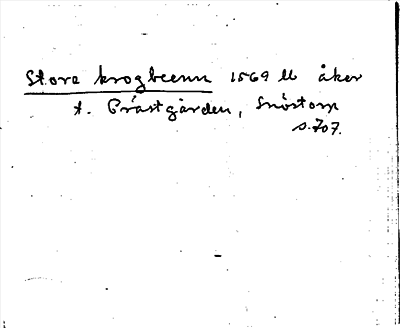 Store krogbeenn 1569 ll åker
t. Prästgården, Snöstorp
s. 707.